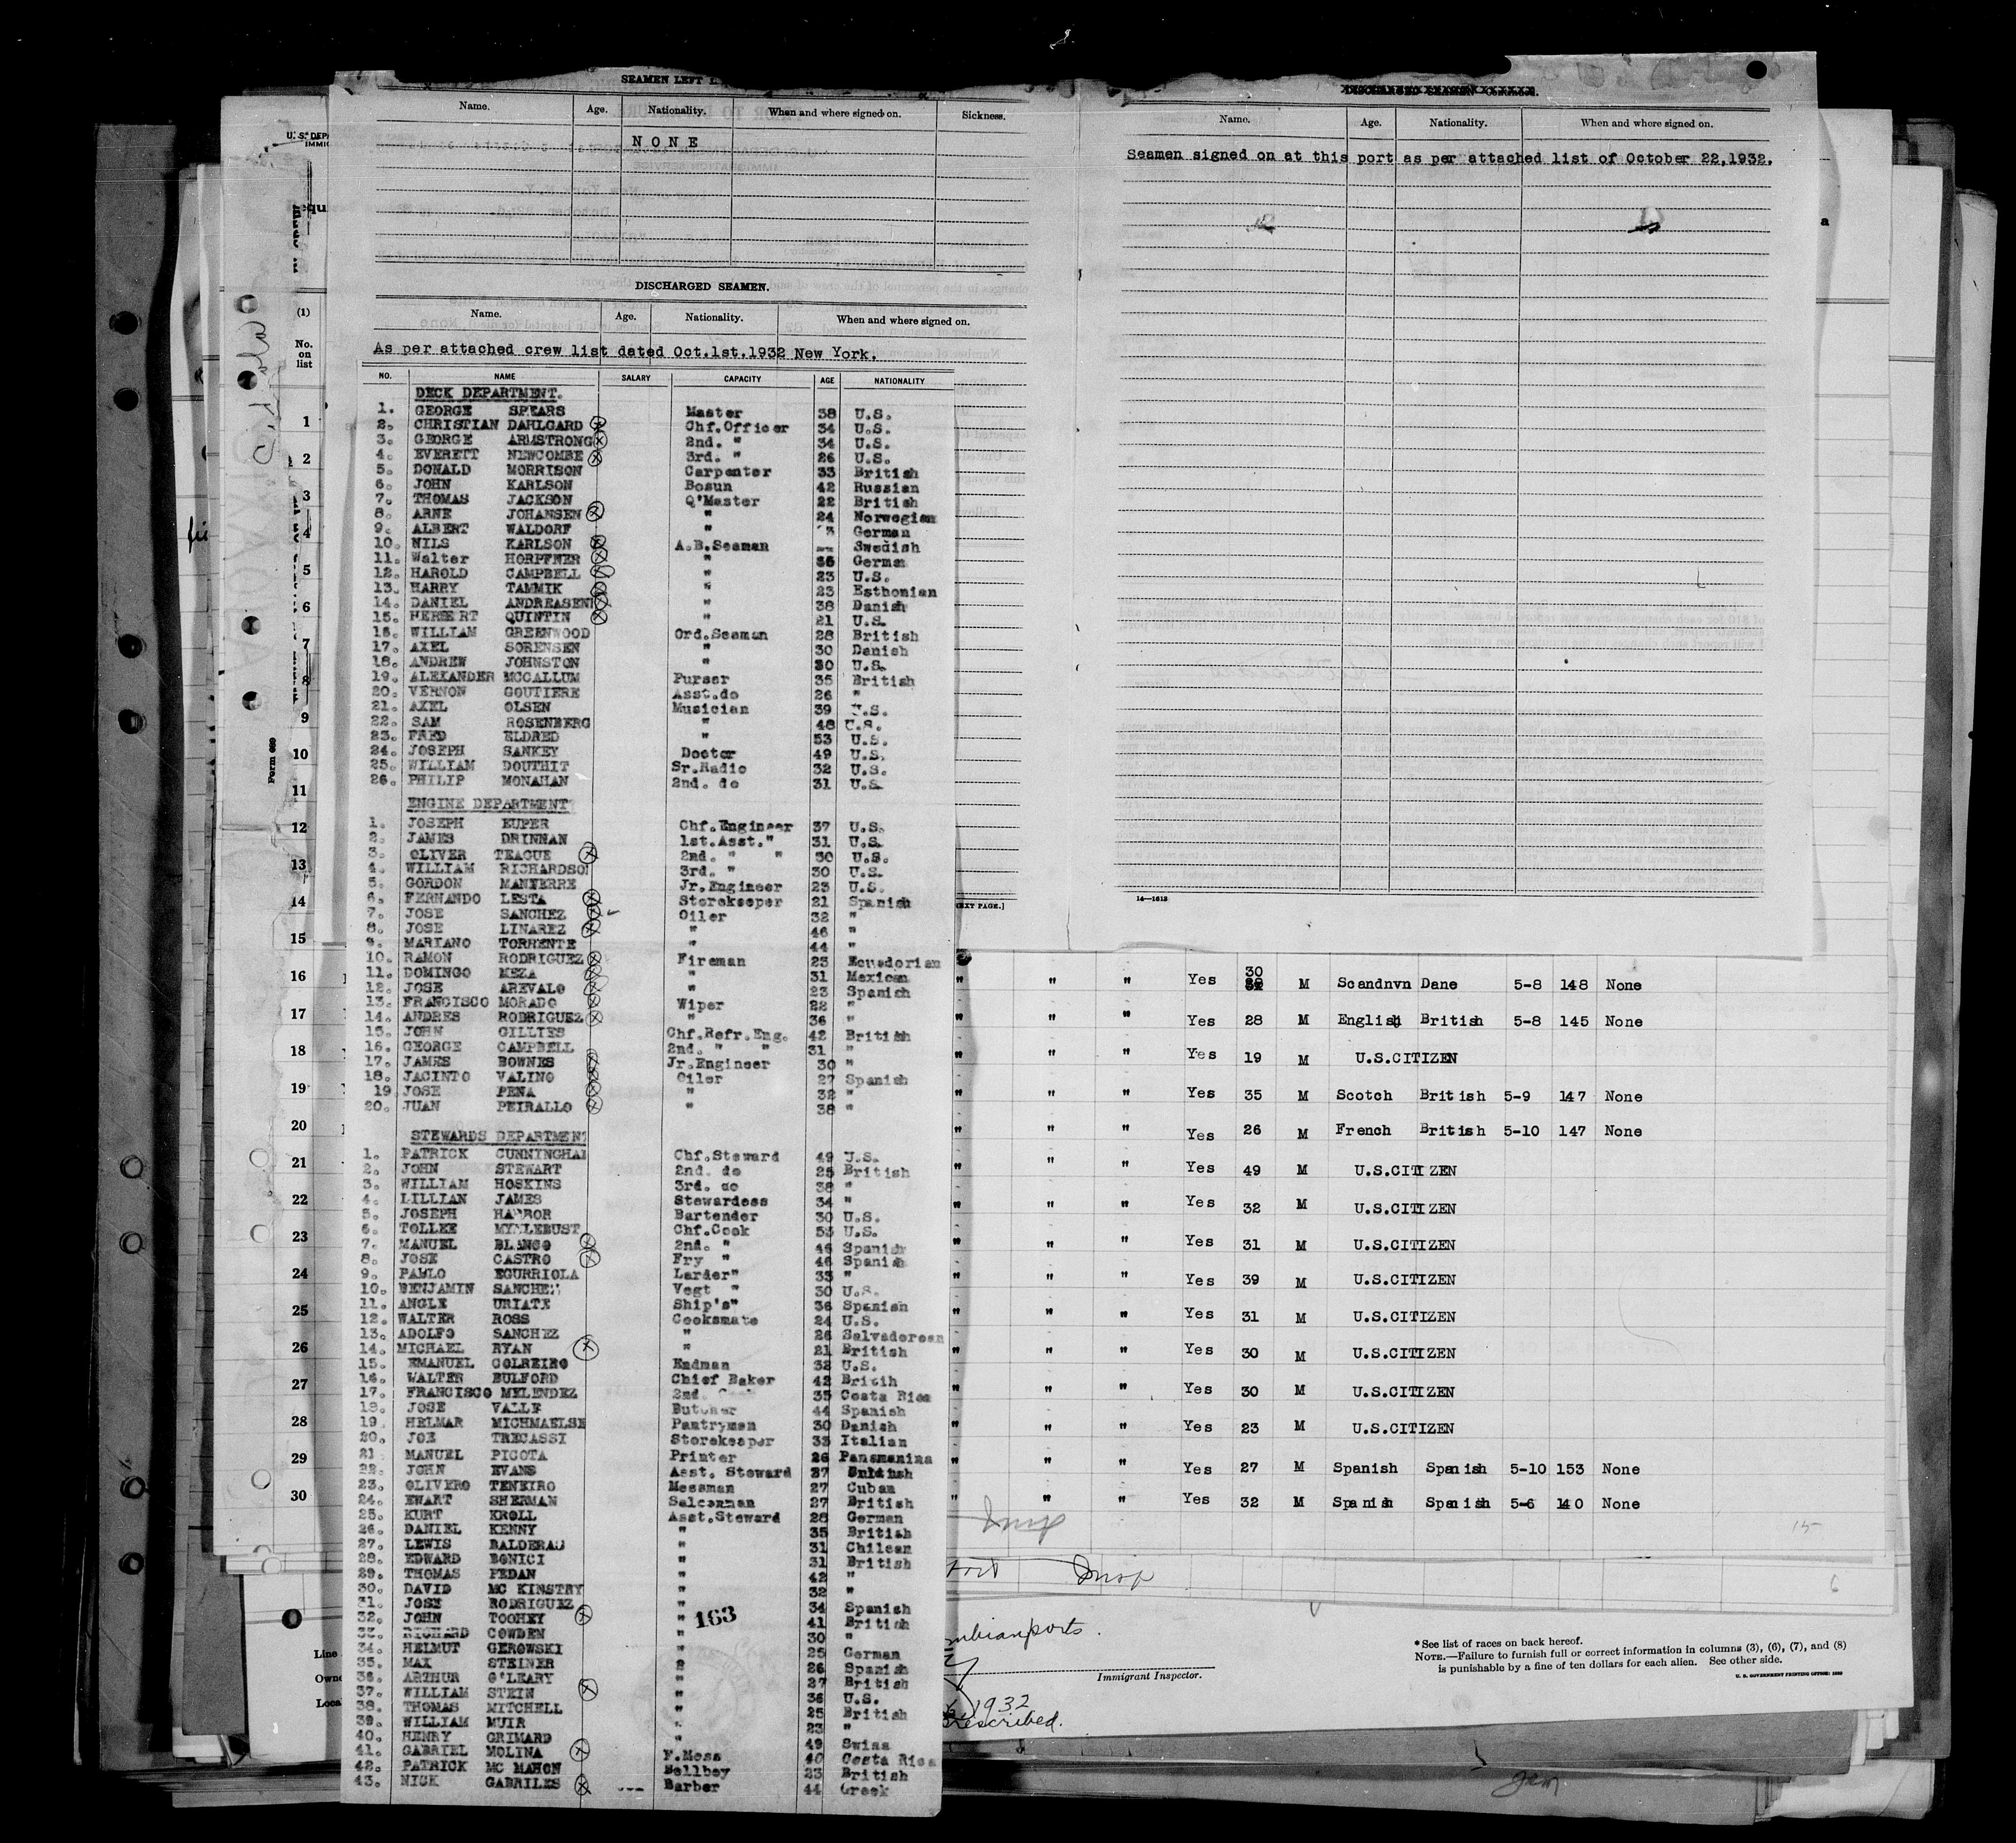 SEAMEN LEFT
Name. Age. Nationality. When and where signed on. Sickness.
NONE
DISCHARGED SEAMEN.
Name. Age. Nationality. When and where signed on.
As per attached crew list dated Oct.1st.1932 New York.
NO. NAME SALARY CAPACITY AGE NATIONALITY
DECK DEPARTMENT.
1. GEORGE SPEARS Master 38 U.S.
2. CHRISTIAN DAHLGARD Chf.Officer 34 U.S.
3. GEORGE ARMSTRONG 2nd. " 34 U.S.
4. EVERETT NEWCOMBE 3rd. " 26 U.S.
5. DONALD MORRISON Carpenter 33 British
6. JOHN KARLSON Bosun 42 Russian
7. THOMAS JACKSON Q'Master 22 British
8. ARNE JOHANSEN " 24 Norwegian
9. ALBERT WALDORF " 3 German
10. NILS KARLSON A.B.Seaman Swedish
11. Walter HORPFNER " 35 German
12. HAROLD CAMPBELL " 23 U.S.
13. HARRY TAMMIK " 23 Esthonian
14. DANIEL ANDREASEN " 38 Danish
15. HERBERT QUINTIN " 21 U.S.
16. WILLIAM GREENWOOD Ord.Seaman 28 British
17. AXEL SORENSEN " 30 Danish
18. ANDREW JOHNSTON " 30 U.S.
19. ALEXANDER MCCALLUM Purser 35 British
20. VERNON GOUTIERE Asst.do 26 "
21. AXEL OLSEN Musician 39 U.S.
22. SAM ROSENBERG " 48 U.S.
23. FRED ELDRED " 53 U.S.
24. JOSEPH SANKEY Doctor 49 U.S.
25. WILLIAM DOUTHIT Sr.Radio 32 U.S.
26. PHILIP MONAHAN 2nd. do 31 U.S.
ENGINE DEPARTMENT
1. JOSEPH EUPER Chf.Engineer 37 U.S.
2. JAMES DRINNAN 1st.Asst." 31 U.S.
3. OLIVER TEAGUE 2nd. " " 30 U.S.
4. WILLIAM RICHARDSO 3rd. " 30 U.S.
5. GORDON MANYERRE Jr.Engineer 23 U.S.
6. FERNANDO LESTA Storekeeper 21 Spanish
7. JOSE SANCHEZ Oiler 32 "
8. JOSE LINAREZ " 46 "
9. MARIANO TORRENTE " 44 "
10. RAMON RODRIGUEZ Fireman 23 Ecuadorian
11. DOMINGO MEZA " 31 Mexican
12. JOSE AREVALO " 23 Spanish
13. FRANCISCO MORADO Wiper 22 "
14. ANDRES RODRIGUEZ " 36 "
15. JOHN GILLIES Chf.Refr.Eng. 42 British
16. GEORGE CAMPBELL 2nd. " " 31 "
17. JAMES BOWNES Jr.Engineer 30 "
18. JACINTO VALINO Oiler 27 Spanish
19 JOSE PENA " 32 "
20. JUAN PEIRALLO " 38 "
STEWARDS DEPARTMENT
1. PATRICK CUNNINGHAM Chf.Steward 49 U.S.
2. JOHN STEWART 2nd. do 25 British
3. WILLIAM HOSKINS 3rd. do 38 "
4. LILLIAN JAMES Stewardess 34 "
5. JOSEPH HARROR Bartender 30 U.S.
6. TOLLEE MYKLEBUST Chf.Cook 53 U.S.
7. MANUEL BLANCO 2nd. " 46 Spanish
8. JOSE CASTRO Fry " 46 Spanish
9. PABLO EGURRIOLA Larder" 33 "
10. BENJAMIN SANCHEZ Vegt " 30 U.S.
11. ANGLE URIATE Ship's" 36 Spanish
12. WALTER ROSS Cooksmate 24 U.S.
13. ADOLFO SANCHEZ " 26 Salvadorean
14. MICHAEL RYAN " 21 British
15. EMANUEL COLREIRO Endman 32 U.S.
16. WALTER BULFORD Chief Baker 42 Britih
17. FRANCISCO MELENDEZ 2nd. 35 Costa Rica
18. JOSE VALLE Butcher 44 Spanish
19. HELMAR MICHMAELSE Pantryman 30 Danish
20. JOE TRECASSI Storekeeper 33 Italian
21 MANUEL PICOTA Printer 26 Panamanina
22. JOHN EVANS Asst. Steward 37 British
23. OLIVERO TENEIRO Messman 27 Cuban
24. EWART SHERMAN Saloonman 27 British
25. KURT KROLL Asst.Steward 28 German
26. DANIEL KENNY " 35 British
27. LEWIS BALDERAS " 31 Chilean
28. EDWARD BONICI " 31 British
29. THOMAS FEDAN " 42 "
30. DAVID MC KINSTRY " 32 "
31. JOSE RODRIGUEZ " 34 Spanish
32. JOHN TOOHEY " 41 British
163
33. RICHARD COWDEN " 30 "
34. HELMUT GEROWSKI " 25 German
35. MAX STEINER " 26 Spanish
36. ARTHUR O'LEARY " 27 British
37. WILLIAM STEIN " 36 U.S.
38. THOMAS MITCHELL " 25 British
39. WILLIAM MUIR " 23 "
40. HENRY GRIMARD " 49 Swiss
41. GABRIEL MOLINA F.Mess 40 Costa Rica
42. PATRICK MC MAHON Bellboy 23 British
43. NICK GABRILES Barber 44 Greek
Name. Age. Nationality. When and where signed on.
Seamen signed on at this port as per attached list of October 22,1932.
14—1813
EXT PAGE.]
U. S. DEPA
IMMIG
(1)
No.
on
list
1
2
3
4
5
6
7
8
9
10
11
12
13
14
15
16
17
18
19
20
21
22
23
24
25
26
27
28
29
30
Form 689
" " " Yes 30 M Scandnvn Dane 5-8 148 None
" " " Yes 28 M English British 5-8 145 None
" " " Yes 19 M U.S.CITIZEN
" " " Yes 35 M Scotch British 5-9 147 None
" " " Yes 26 M French British 5-10 147 None
" " " Yes 49 M U.S.CITIZEN
" " " Yes 32 M U.S.CITIZEN
" " " Yes 31 M U.S.CITIZEN
" " " Yes 39 M U.S.CITIZEN
" " " Yes 31 M U.S.CITIZEN
" " " Yes 30 M U.S.CITIZEN
" " " Yes 30 M U.S.CITIZEN
" " " Yes 23 M U.S.CITIZEN
" " " Yes 27 M Spanish Spanish 5-10 153 None
" " " Yes 32 M Spanish Spanish 5-6 140 None
15
6
Line
Owne
Loca
mbian ports.
Immigrant Inspector.
1932
rescribed.
* See list of races on back hereof.
NOTE.—Failure to furnish full or correct information in columns (3), (6), (7), and (8)
is punishable by a fine of ten dollars for each alien. See other side.
U. S. GOVERNMENT PRINTING OFFICE: 1932